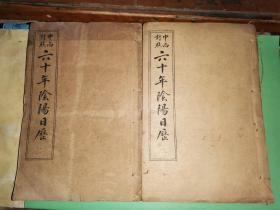 中西對照
六十年陰陽日歷
中西對照
六十年陰陽日歷